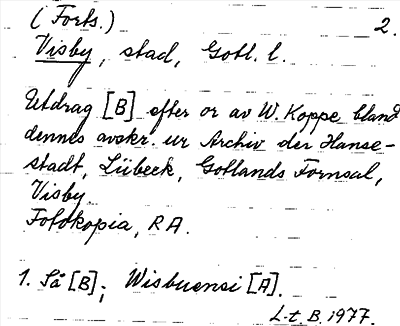 (Forts.) 2.
Visby, stad, Gotl. l.
Utdrag [B] efter or av W. Koppe bland
dennes avskr. ur Archiv der Hanse-
stadt, Lübeck, Gotlands Fornsal,
Visby.
Fotokopia, RA.
1. Så [B]; Wisbuensi [A].
L-t B. 1977.